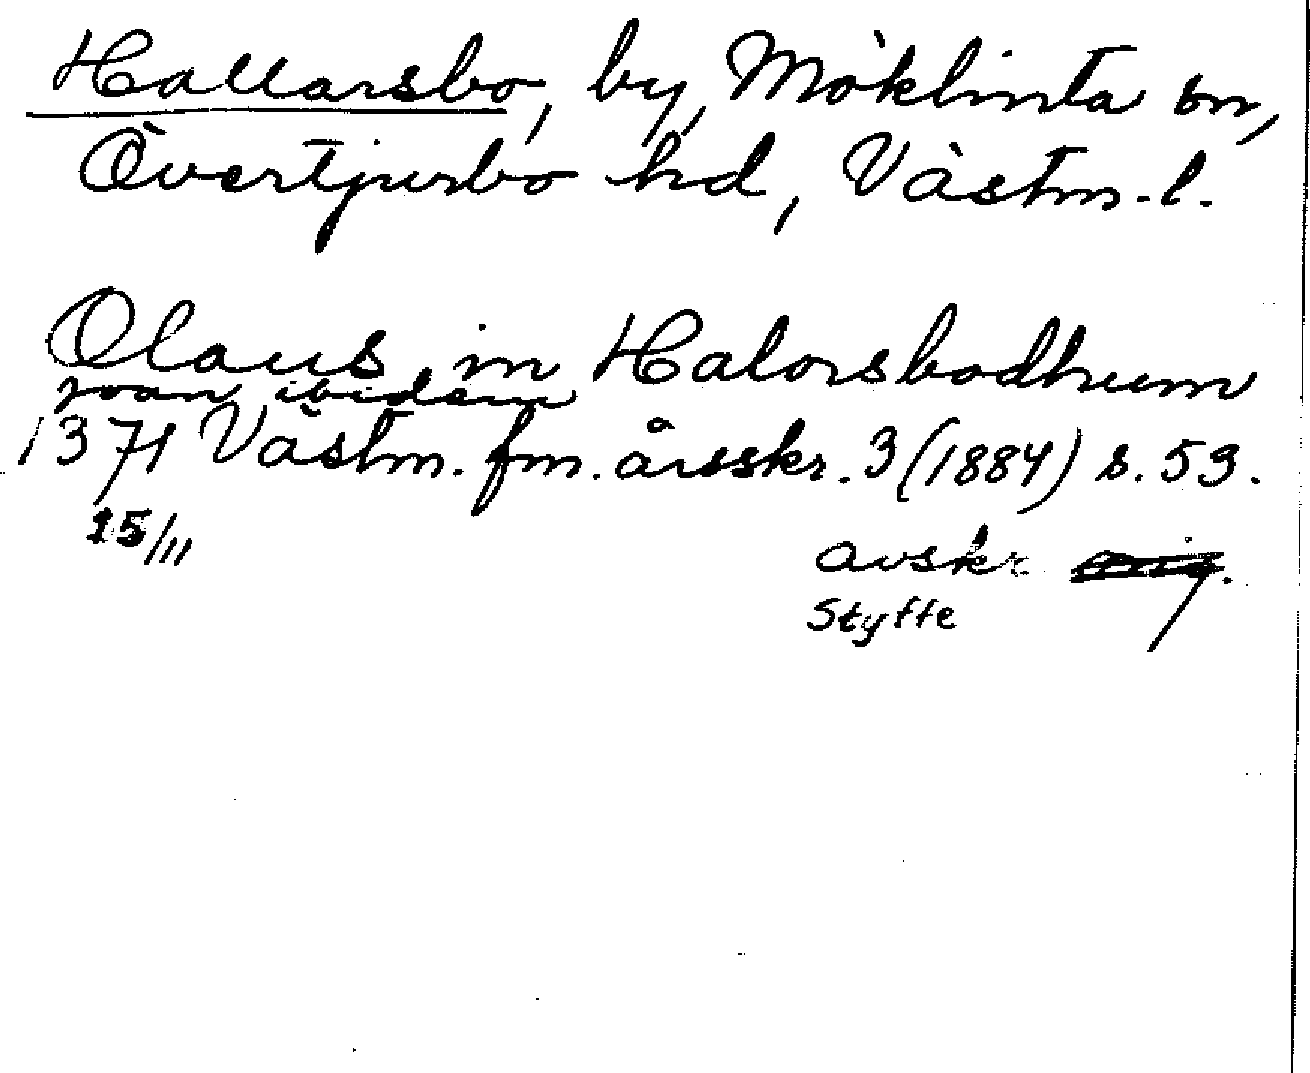 Hallarsbo, by, Möklinta sn,
Övertjurbo hd, Västm. l.
Olaus in Halorsbodhum
ibidem
1371 Västm. fm. årsskr. 3 (1884) s. 59.
15/11
avskr
Styffe